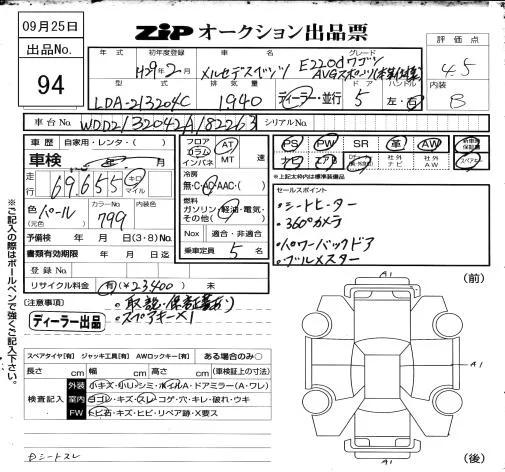 09月25日
ZiP オークション出品票
出品No.
94
年式 初年度登録 車名 グレード 評価点
H29年2月 メルセデスベンツ E220dワゴン AVGスポーツ(本革仕様) 4.5
型式 排気量 ドア ハンドル 内装
LDA-213204C 1940 ディーラー・並行 5 左・右 B
車台No. WDD2132042A182263 シリアルNo.
車歴 自家用・レンタ・( )
フロア コラム インパネ AT MT 速
PS PW SR 革 AW
車検 年 月
エアB 社外ナビ 社外AW スペアキー
※上記太枠内は標準装備品
走行 69,655 キロ マイル
冷房
無・C・AC・AAC・( )
セールスポイント
・シートヒーター
・360°カメラ
・パワーバックドア
・ブルメスター
色 パール カラーNo. 799 内装色
(元色)
燃料
ガソリン・軽油・電気・
その他( )
予備検 年 月 日(3・8)No.
Nox 適合・非適合
書類有効期限 年 月 日迄
乗車定員 5 名
登録No.
リサイクル料金 有(¥23,400) 未
(注意事項)
・取説・保証書あり
・スペアキー×1
ディーラー出品
スペアタイヤ[有] ジャッキ工具[有] AWロックキー[有] ある場合のみ○
長さ cm 幅 cm 高さ cm (車検証上の寸法)
検査記入
外装 小キズ・小凹・シミ・ホイルA・ドアミラー(A・ワレ)
室内 ヨゴレ・キズ・スレ・コゲ・穴・キレ・破れ・ウキ
FW トビ石・キズ・ヒビ・リペア跡・X要ス
Dシートスレ
※ご記入の際はボールペンで強くご記入下さい。
(前)
A1
A1
A1
(後)